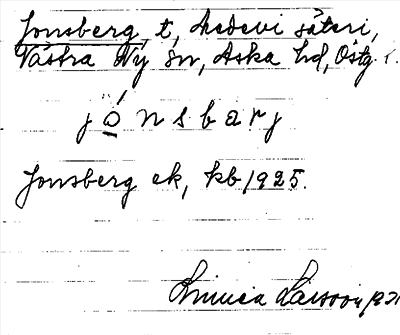 Jonsberg, t, Medevi säteri,
Västra Ny sn, Aska hd, Östg.
jónsbarj
Jonsberg ek, kb 1925.
Linnea Larsson